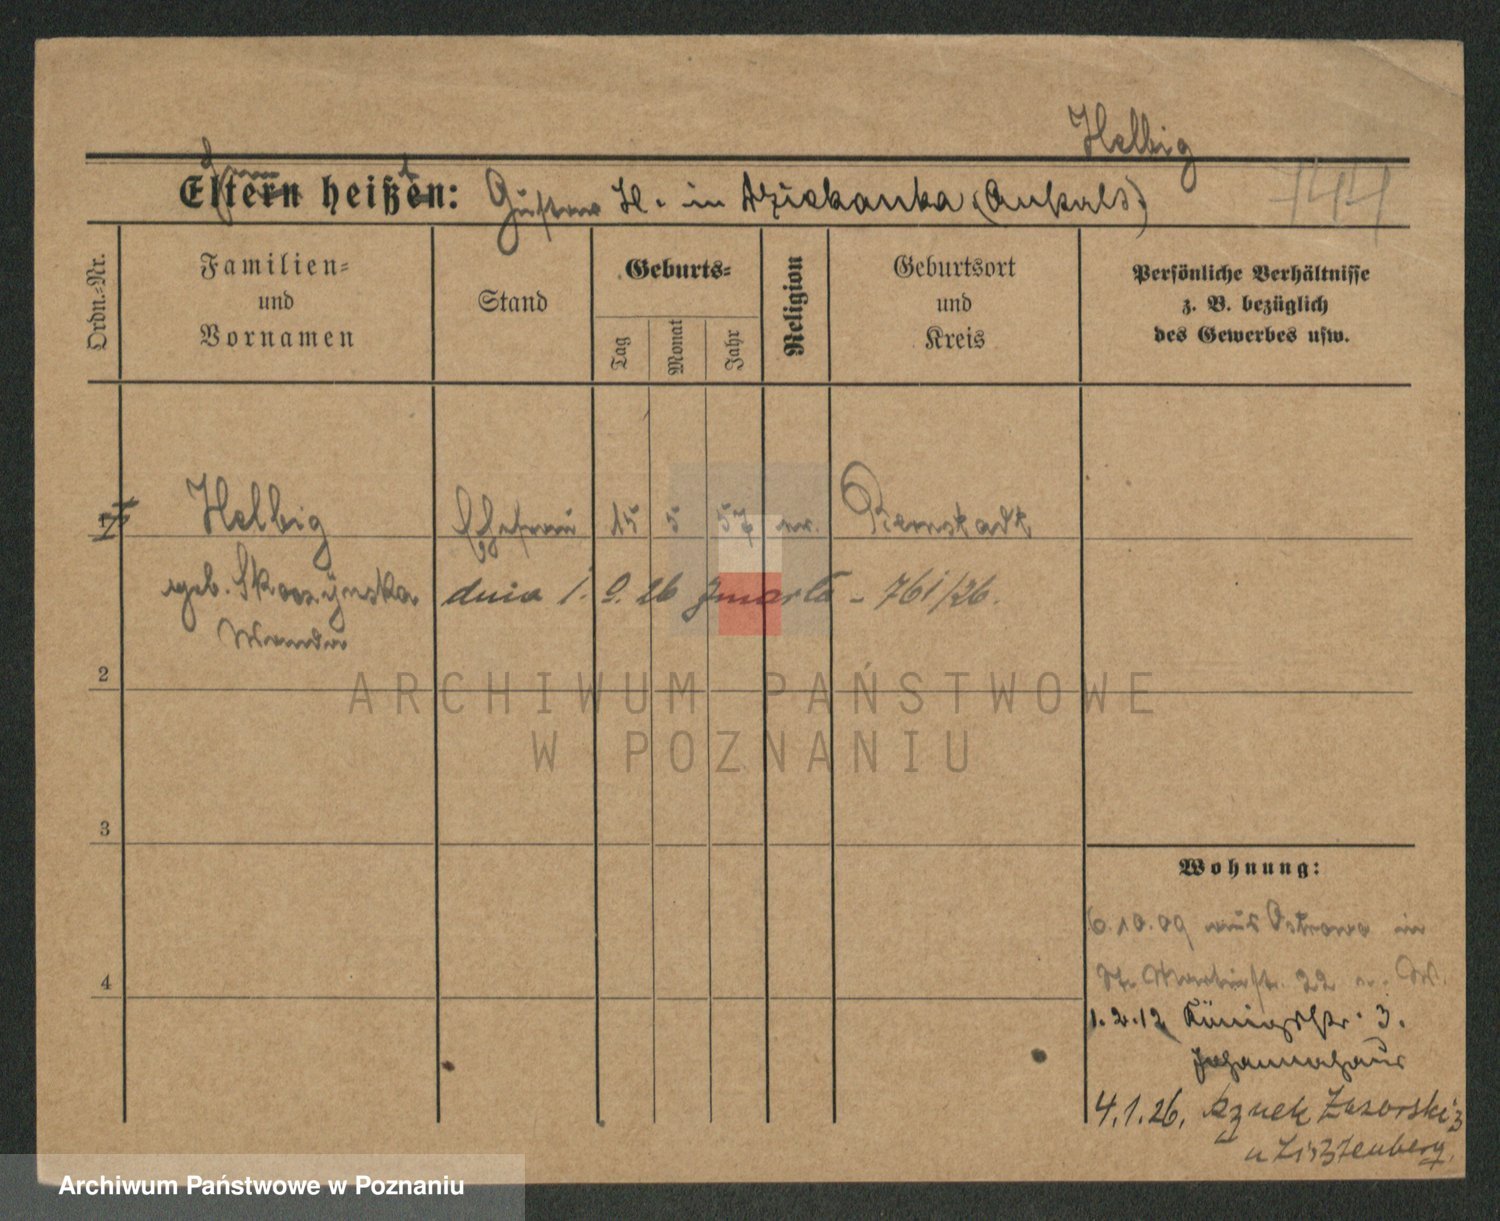 Helbig
Eltern heißen: Gustav H. in Dziekanka (Anstalt)
144
Ordn.-Nr.
Familien- und Vornamen
Stand
Geburts-
Tag
Monat
Jahr
Religion
Geburtsort und Kreis
Persönliche Verhältnisse z. B. bezüglich des Gewerbes usw.
1
Helbig Ehefrau 15 5 57 ev. Bernstadt
geb. dnia 1. 9. 26 zmarła - 761/26.
Wanda
2
3
4
Wohnung:
6.10.09 aus Ostrowo in
St. Martinstr. 22
1.2.12 Königstr. 3.
Johannahaus
4.1.26. Rynek 3
u
ARCHIWUM PAŃSTWOWE
W POZNANIU
Archiwum Państwowe w Poznaniu